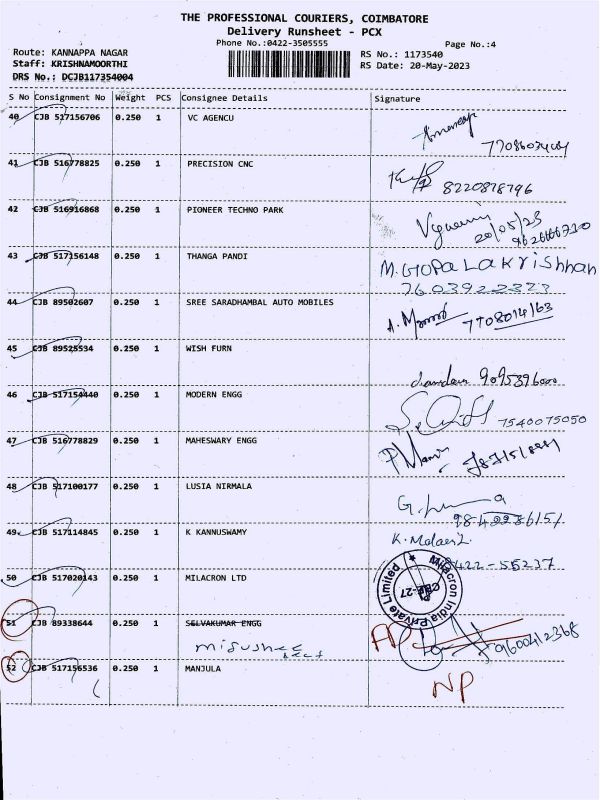 THE PROFESSIONAL COURIERS, COIMBATORE
Delivery Runsheet - PCX
Phone No.:0422-3505555
Page No.:4
Route: KANNAPPA NAGAR
Staff: KRISHNAMOORTHI
DRS No.: DCJB117354004
RS No.: 1173540
RS Date: 20-May-2023
S No Consignment No Weight PCS Consignee Details Signature
40 CJB 517156706 0.250 1 VC AGENCU
41 CJB 516778825 0.250 1 PRECISION CNC
8220878796
42 CJB 516916868 0.250 1 PIONEER TECHNO PARK
20/05/23
43 CJB 517156148 0.250 1 THANGA PANDI M. GOPALAKRISHNAN
7603922323
44 CJB 89502607 0.250 1 SREE SARADHAMBAL AUTO MOBILES
7708014163
45 CJB 89525534 0.250 1 WISH FURN
9095396000
46 CJB 517154440 0.250 1 MODERN ENGG
7540075050
47 CJB 516778829 0.250 1 MAHESWARY ENGG
48 CJB 517100177 0.250 1 LUSIA NIRMALA
49 CJB 517114845 0.250 1 K KANNUSWAMY
50 CJB 517020143 0.250 1 MILACRON LTD
0422-55237
Milacron India Private Limited
CBE-27
51 CJB 89338644 0.250 1 SELVAKUMAR ENGG
9600412368
52 CJB 517156536 0.250 1 MANJULA
NP